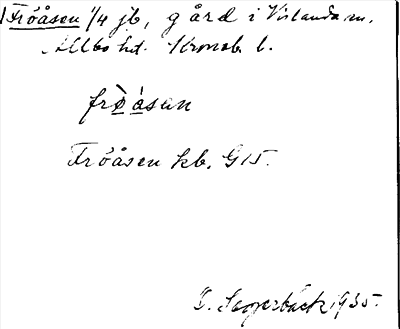 Fröåsen 1/4 jb, gård i Vislanda sn.
Allbo hd. Kronob. l.
frö̀åsan
Fröåsen kb. G15.
Lagerbäck 1935.